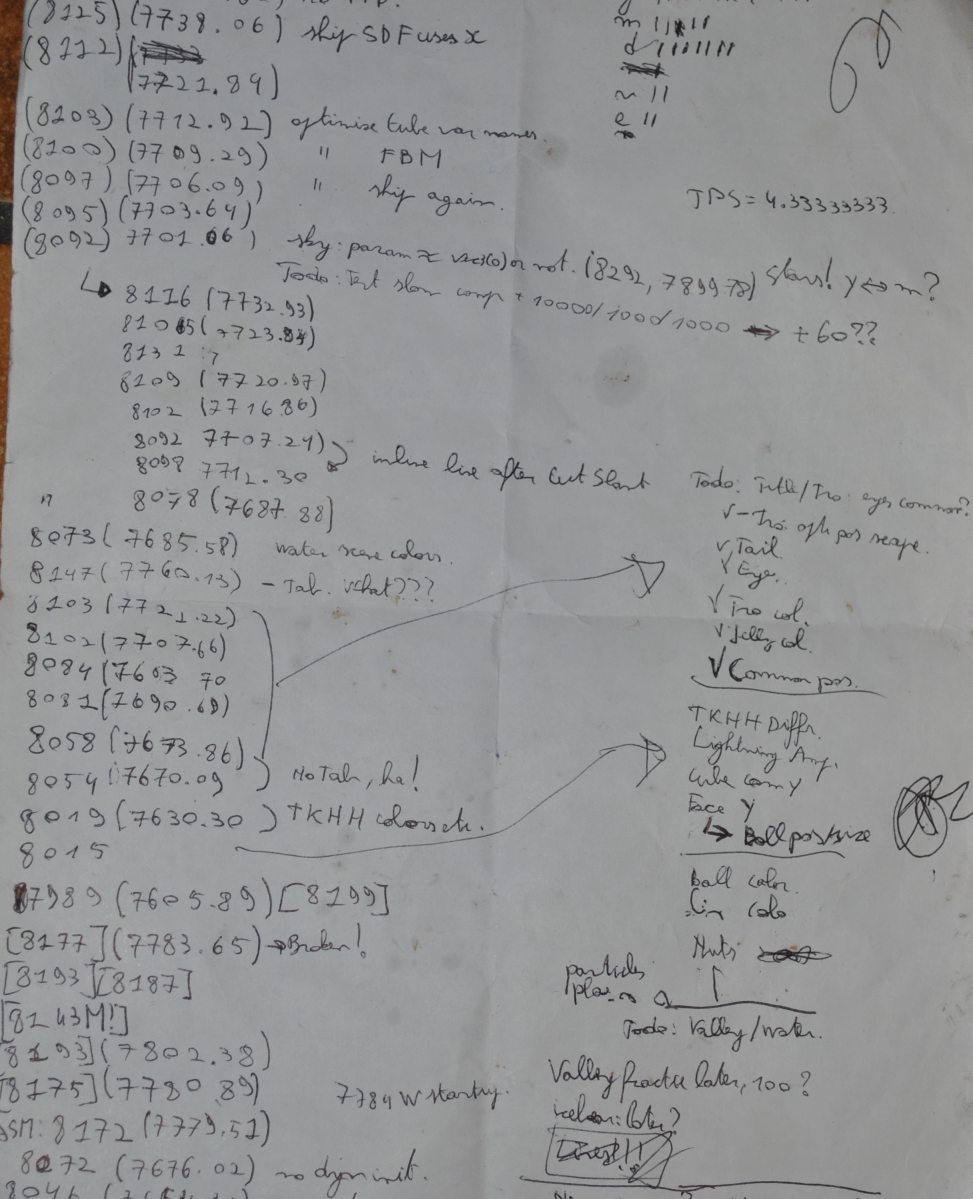 (8125) (7738.06) ship SDF uses x
(8112)
(7721.89)
(8103) (7712.92) optimise tube var names.
(8100) (7709.29) " FBM
(8097) (7706.09) " ship again.
(8095) (7703.64)
(8092) 7701.06) sky: param x vec3(0) or not. (8292, 7899.78) Stars! y ↔ m?
Todo: Test slow comp + 10000/1000/1000 → +60??
↳ 8116 (7732.93)
8105 (7723.84)
8131 : ?
8109 (7720.97)
8102 (7716.86)
8092 7707.24)
8098 7712.30 inline live after Cut Start
" 8078 (7687.88)
8073 (7685.58) water scene colors.
8147 (7760.13) - Tab. What???
8103 (7721.22)
8102 (7707.66)
8084 (7603 70
8081 (7690.69)
8058 (7673.86)
8054 (7670.09) No Tab, ha!
8019 (7630.30) TKHH colors etc.
8015
7989 (7605.89) [8199]
[8177] (7783.65) → Broken!
[8193] [8187]
[8143M!]
[8193] (7802.38)
[8175] (7780.89) 7784 W startry.
8172 (7779.51)
8072 (7676.02) no dyn init.
m
d
n ||
e ||
TPS = 4.33333333
Todo: Title/Tro: eyes common?
✓ - Tro. pos
✓ Tail
✓ Eye.
✓ Tro col.
✓ Jelly col.
✓ Common pos.
TKHH Diffr.
Lightning Amp.
Cube com y
Face Y
↳ Ball pos + size
Ball color.
Lin colo
Huts
particles
Todo: Valley/Water.
Valley fractu later, 100?
later?